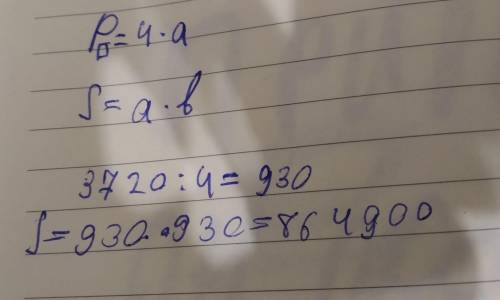 P□=4·a
S=a·b
3720:4=930
S=930·930=864900